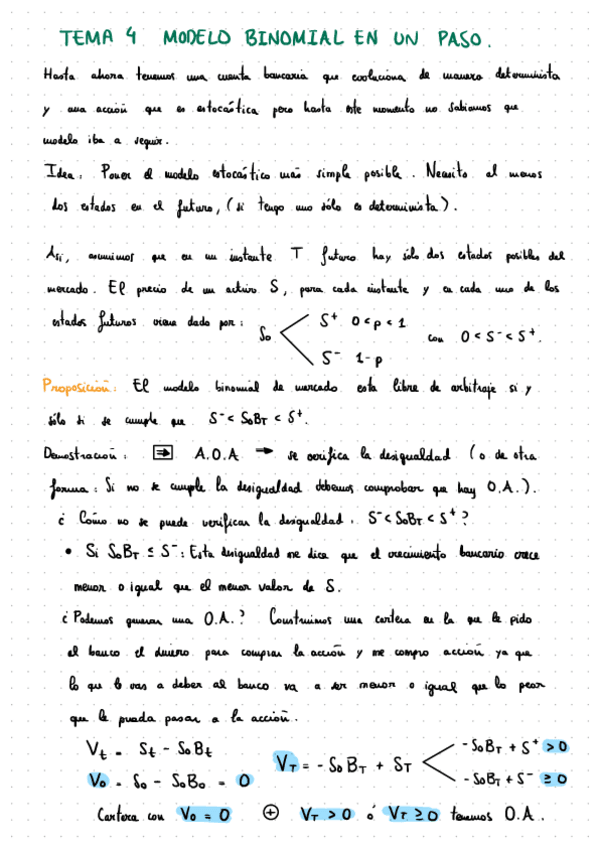 TEMA 4 MODELO BINOMIAL EN UN PASO.
Hasta ahora tenemos una cuenta bancaria que evoluciona de manera determinista
y una acción que es estocástica pero hasta este momento no sabíamos que
modelo iba a seguir.
Idea: Poner el modelo estocástico más simple posible. Necesito al menos
dos estados en el futuro, (si tengo uno sólo es determinista).
Así, asumimos que en un instante T futuro hay sólo dos estados posibles del
mercado. El precio de un activo S, para cada instante y en cada uno de los
estados futuros viene dado por: S₀ S⁺ 0<p<1 con 0<S⁻<S⁺.
S⁻ 1-p
Proposición: El modelo binomial de mercado esta libre de arbitraje si y
sólo si se cumple que S⁻< S₀B_T < S⁺.
Demostración: ⇒ A.O.A → se verifica la desigualdad (o de otra
forma: Si no se cumple la desigualdad debemos comprobar que hay O.A.).
¿ Cómo no se puede verificar la desigualdad, S⁻< S₀B_T < S⁺ ?
• Si S₀B_T ≤ S⁻: Esta desigualdad me dice que el crecimiento bancario crece
menor o igual que el menor valor de S.
¿ Podemos generar una O.A.? Construimos una cartera en la que le pido
al banco el dinero para comprar la acción y me compro acción ya que
lo que le vas a deber al banco va a ser menor o igual que lo peor
que le pueda pasar a la acción.
V_t = S_t - S₀B_t
V_T = - S₀B_T + S_T - S₀B_T + S⁺ > 0
- S₀B_T + S⁻ ≥ 0
V₀ = S₀ - S₀B₀ = 0
Cartera con V₀ = 0 ⊕ V_T > 0 ó V_T ≥ 0 tenemos O.A.